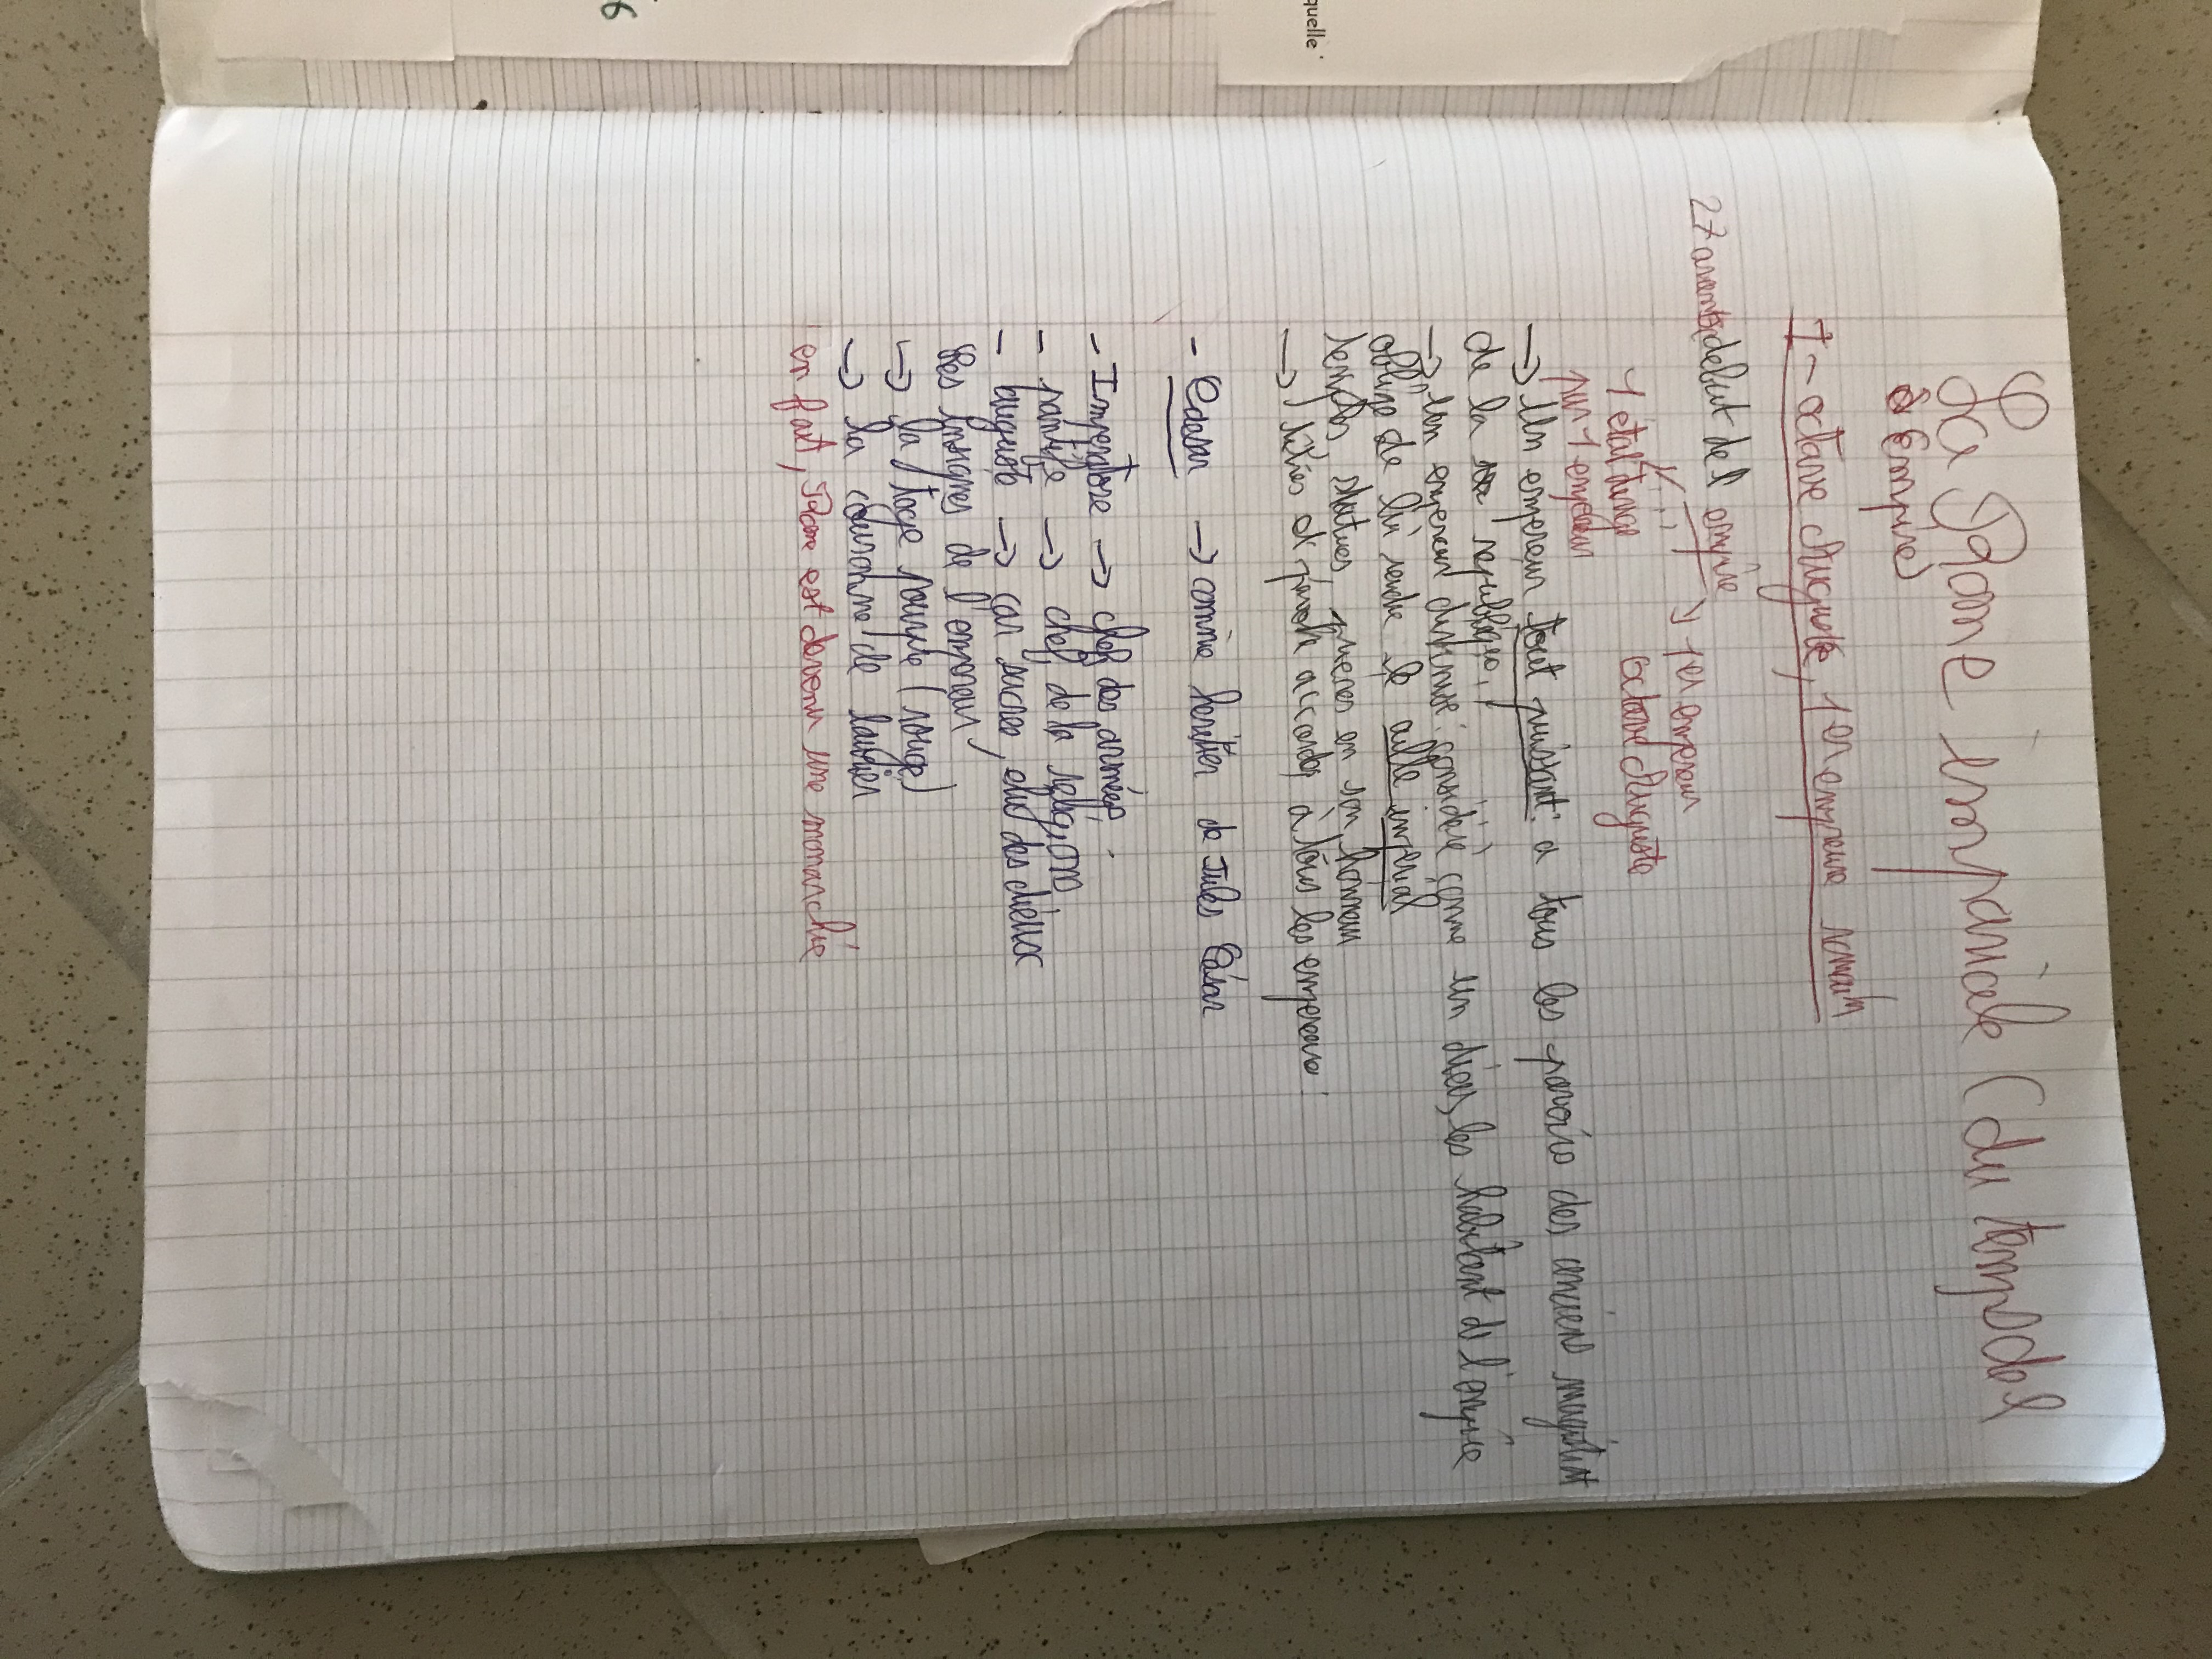 La Rome impériale (du temps de l
Empire)
I - octave Auguste, 1er empereur romain
27 avant debut de l empire → 1er empereur
octave Auguste
1 état dirigé
par 1 empereur
→ Un empereur tout puissant : a tous les pouvoirs des anciens magistrat
de la republique,
→ Un empereur divinisé : considéré comme un dieu, les habitant de l'empire
oblige de lui rendre le culte imperial
temples, statues, prieres en son honneur
→ titres et pouvoir accordés à tous les empereurs :
- César → comme héritier de Jules César
- Imperatore → chef des armées,
- pontife → chef de la religion
- auguste → car sacrée, elu des dieux
Les insignes de l'empereur
→ la toge pourpre (rouge)
→ la couronne de laurier
en fait, Rome est devenu une monarchie
quelle
6